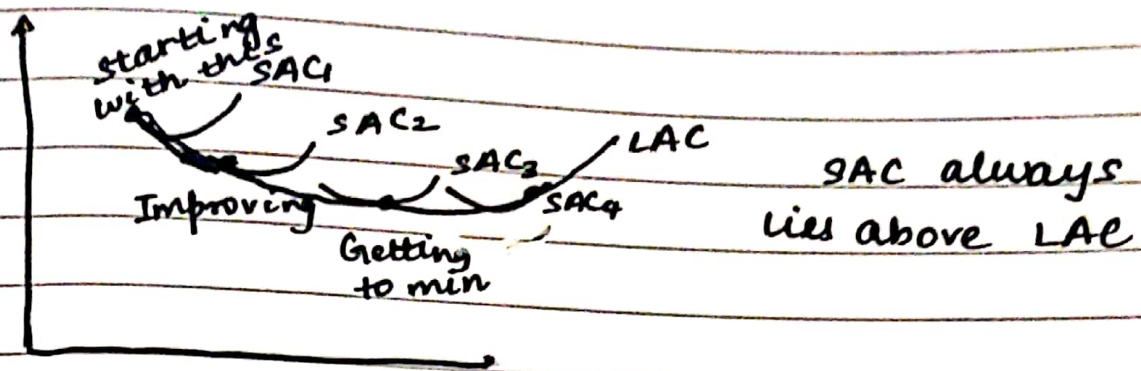 starting
with this
SAC1
SAC2
LAC
SAC3
SAC4
Improving
Getting
to min
SAC always
lies above LAC